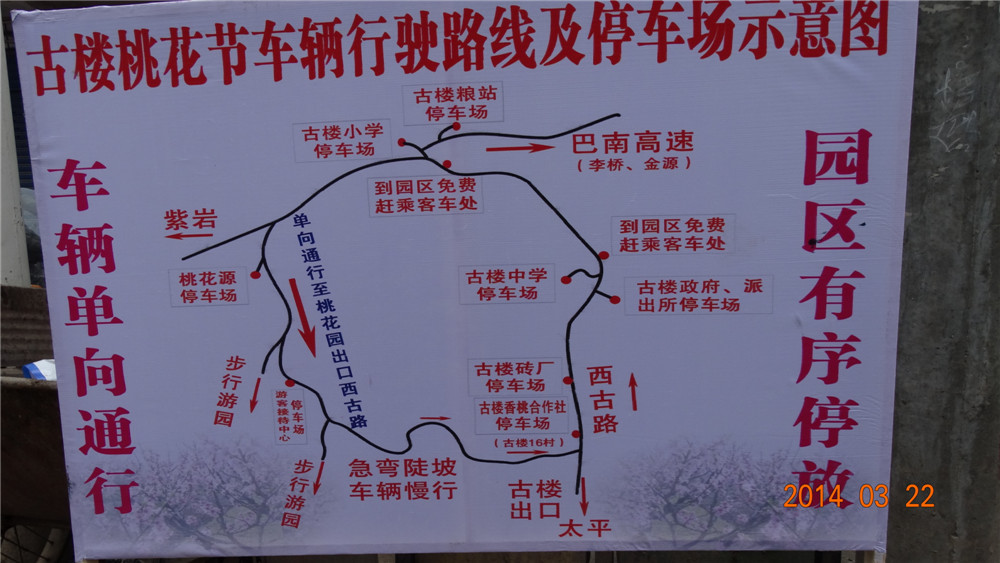 古楼桃花节车辆行驶路线及停车场示意图
车辆单向通行
园区有序停放
古楼粮站
停车场
古楼小学
停车场
巴南高速
(李桥、金源)
到园区免费
赶乘客车处
紫岩
单向通行至桃花园出口西古路
到园区免费
赶乘客车处
桃花源
停车场
古楼中学
停车场
古楼政府、派
出所停车场
步行游园
停车场
游客接待中心
古楼砖厂
停车场
西古路
古楼香桃合作社
停车场
(古楼16村)
急弯陡坡
车辆慢行
步行游园
古楼
出口
太平
2014 03 22